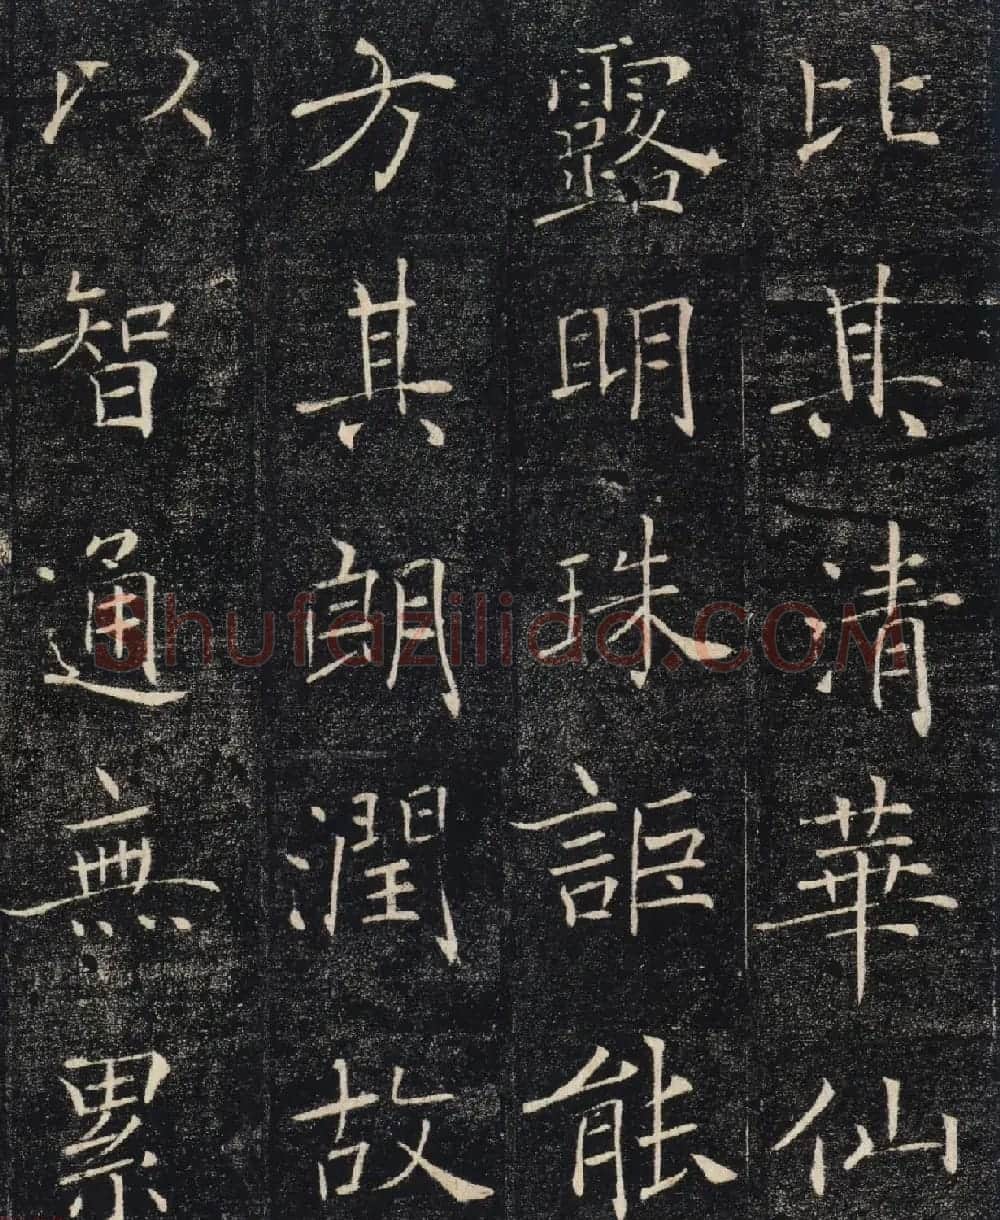 比其清華仙
露明珠詎能
方其朗潤故
以智通無累
Shufaziliao.COM